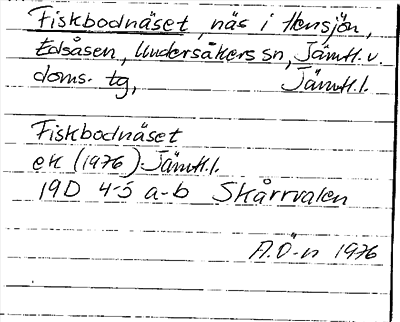 Fiskbodnäset, näs i Hensjön,
Edsåsen, Undersåkers sn, Jämtl. v.
doms. tg, Jämtl. l.
Fiskbodnäset
ek (1976) Jämtl. l.
19D 4-5 a-b Skårrvalen
A.Ö-n 1976